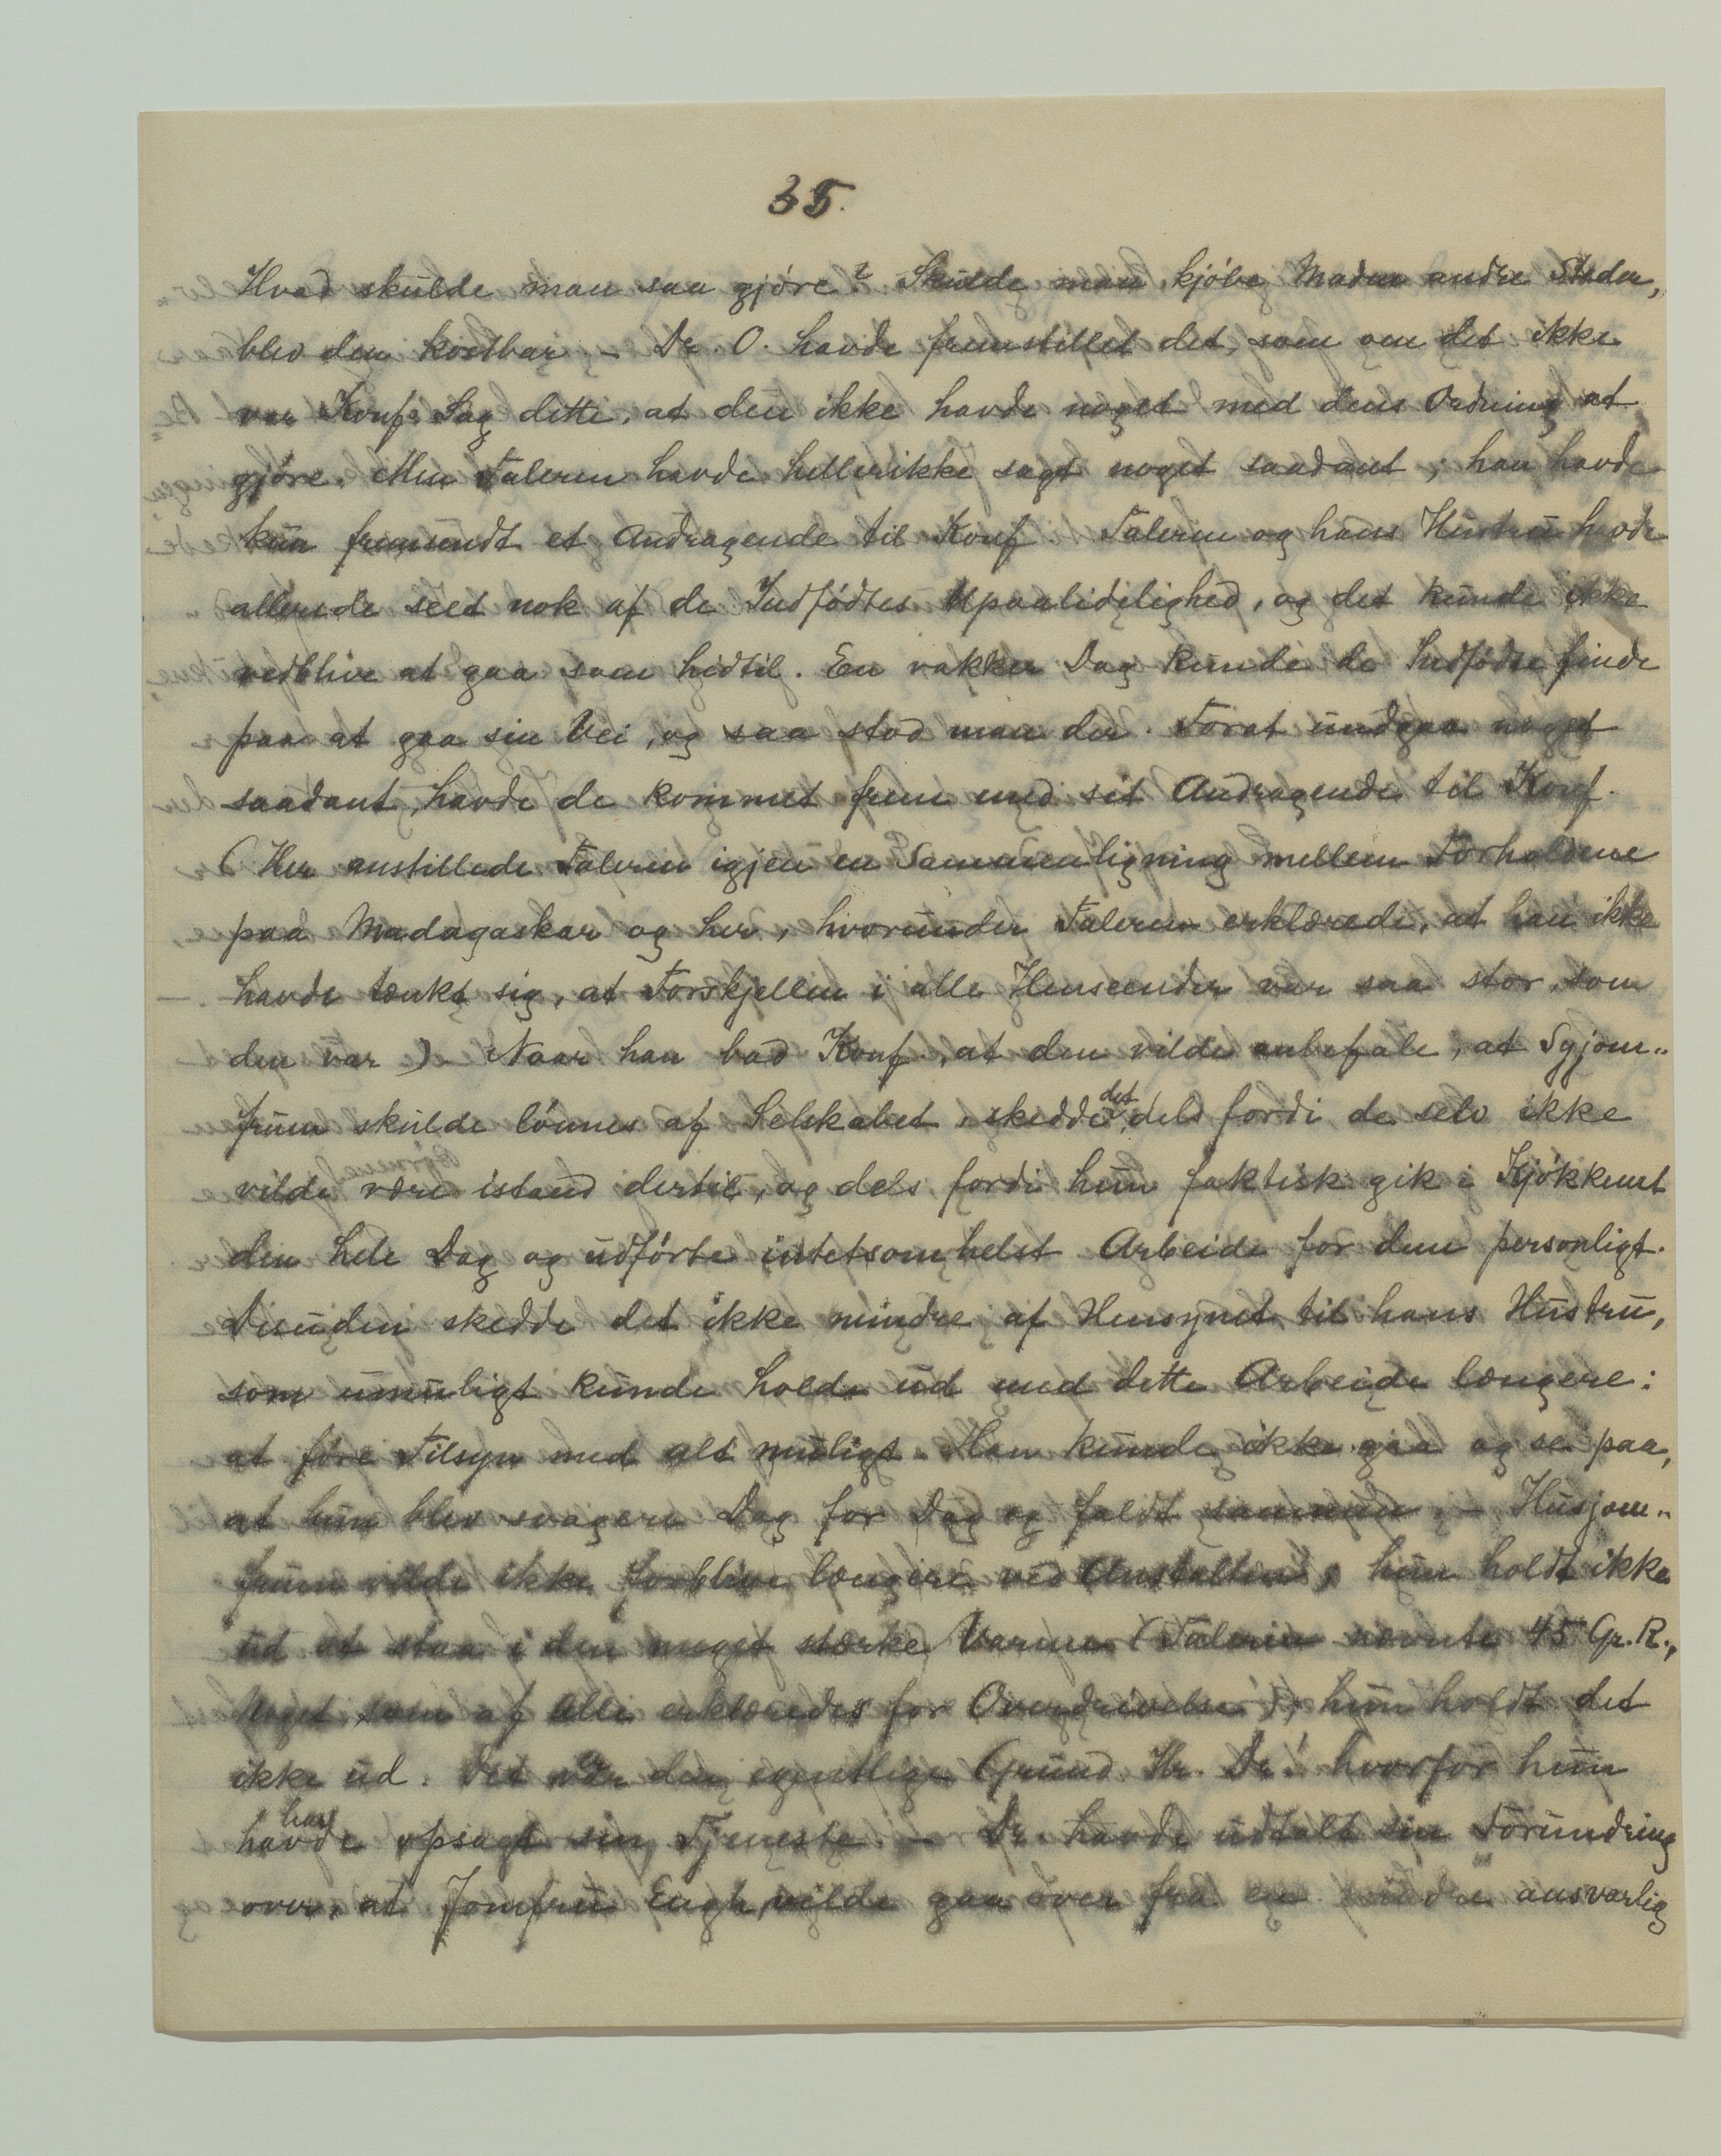 35.
Hvad skulde man saa gjöre? Skulde man kjöbe Maden andre Steder,
blev den kostbar. – Dr. O. havde fremstillet det, som om det ikke
var Konf: Sag dette, at den ikke havde noget med dens Ordning at
gjöre. Men Taleren havde hellerikke sagt noget saadant; han havde
kun fremsendt et Andragende til Konf. Taleren og hans Hustru havde
allerede seet nok af de Indfödtes Upaalidelighed, og det kunde ikke
vedblive at gaa som hidtil. En vakker Dag kunde de Indfödte finde
paa at gaa sin Vei, og saa stod man der. Forat undgaa noget
saadant, havde de kommet frem med sit Andragende til Konf.
(Her anstillede Taleren igjen en Sammenligning mellem Forholdene
paa Madagaskar og her, hvorunder Taleren erklærede, at han ikke
havde tænkt sig, at Forskjellen i alle Henseender var saa stor, som
den var) – Naar han bad Konf., at den vilde anbefale, at Sygjom-
fruen skulde lönnes af Selskabet, skedde det dels fordi de selv ikke
vilde være istand dertil, og dels fordi hun faktisk gik i Kjökkenet
den hele Dag og udförte intetsomhelst Arbeide for dem personligt.
Desuden skedde det ikke mindre af Hensynet til hans Hustru,
som umuligt kunde holde ud med dette Arbeide længere:
at före Tilsyn med alt muligt. Han kunde ikke gaa og se paa,
at hun blev svagere Dag for Dag og faldt sammen. – Husjom-
fruen vilde ikke forblive længere ved Anstalten; hun holdt ikke
ud at staa i den meget stærke Varme (Taleren nævnte 45 Gr. R.,
noget, som af Alle erklæredes for Overdrivelse); hun holdt det
ikke ud. Det var den egentlige Grund Hr. Dr.! hvorfor hun
har havde opsagt sin Tjeneste. – Dr. havde udtalt sin Forundring
over, at Jomfru Engh vilde gaa over fra en mindre ansvarlig